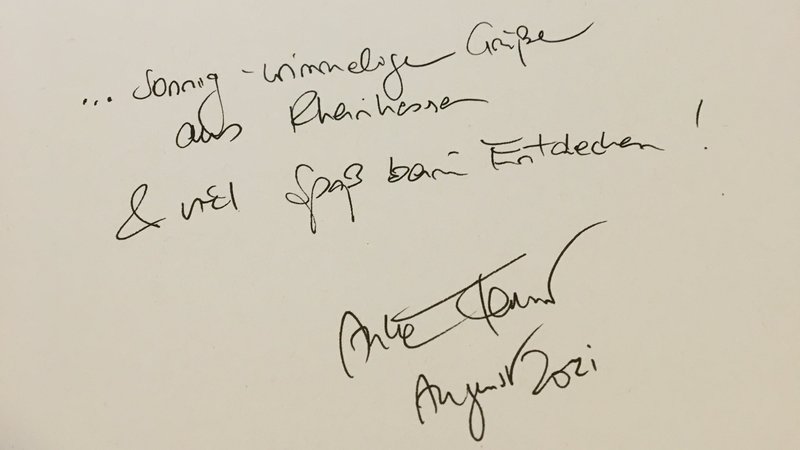 ... sonnig-wimmelige Grüße
aus Rheinhessen
& viel Spaß beim Entdecken!
August 2021